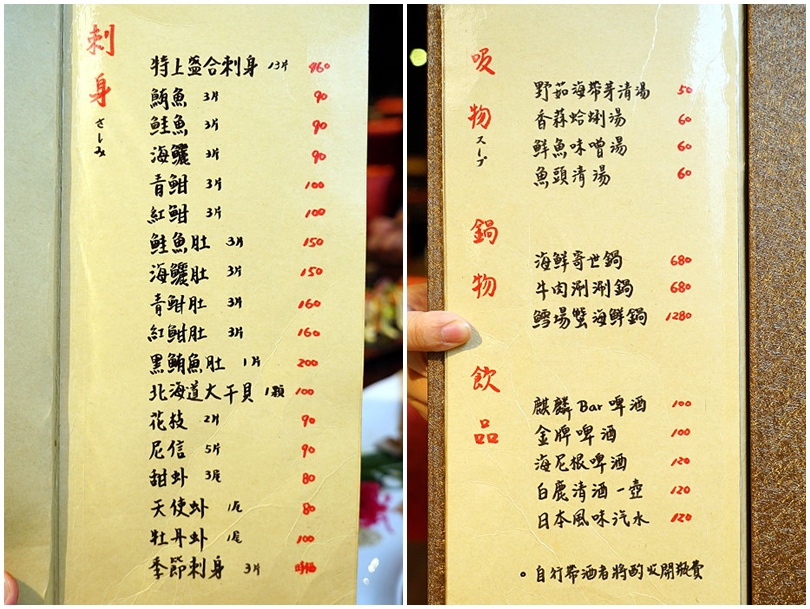 刺身
さしみ
特上盛合刺身 13片 960
鮪魚 3片 90
鮭魚 3片 90
海鱺 3片 90
青魽 3片 100
紅魽 3片 100
鮭魚肚 3片 150
海鱺肚 3片 150
青魽肚 3片 160
紅魽肚 3片 160
黑鮪魚肚 1片 200
北海道大干貝 1顆 100
花枝 2片 90
尼信 5片 90
甜虾 3尾 80
天使虾 1尾 80
牡丹虾 1尾 100
季節刺身 3片 時價
吸物
スープ
野菇海帶芽清湯 50
香蒜蛤蜊湯 60
鮮魚味噌湯 60
魚頭清湯 60
鍋物
海鮮哥世鍋 680
牛肉涮涮鍋 680
鱈場蟹海鮮鍋 1280
飲品
麒麟Bar啤酒 100
金牌啤酒 100
海尼根啤酒 120
白鹿清酒一壺 120
日本風味汽水 120
。自行帶酒者將酌收開瓶費